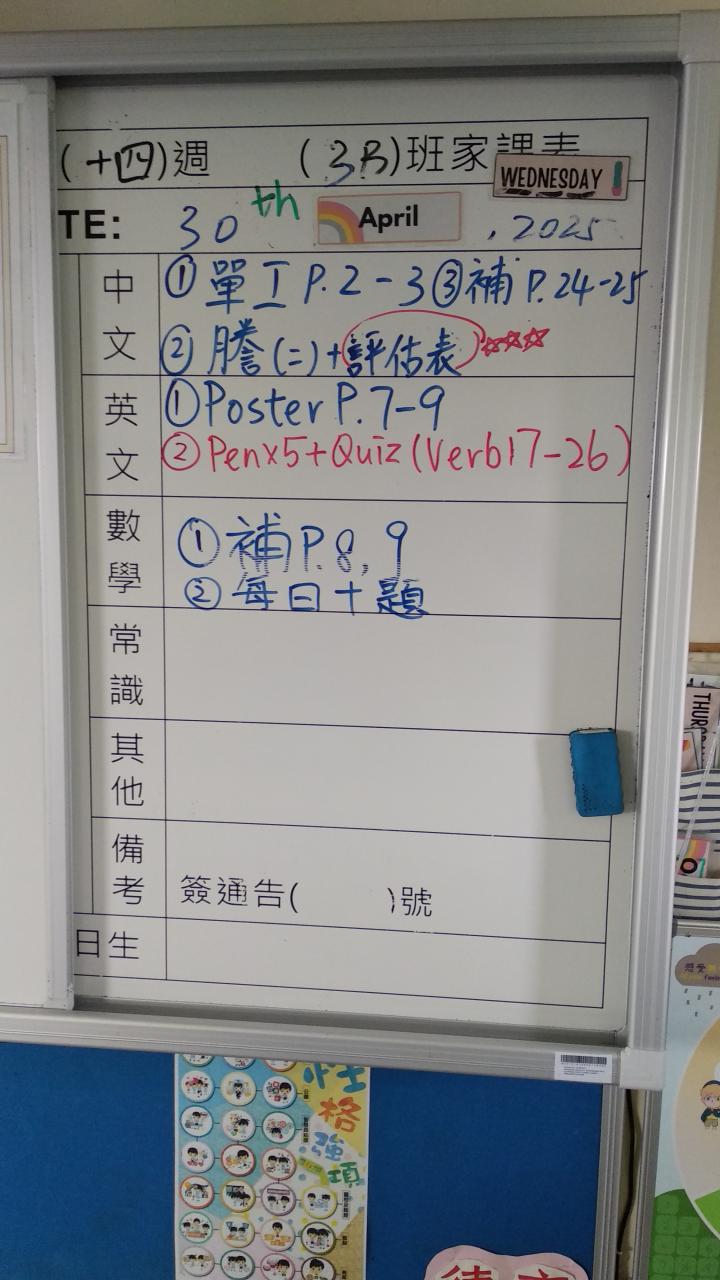 (十四)週 (3B)班家課表
WEDNESDAY
TE: 30th April , 2025
中文 ①單工 P.2-3 ③補 P.24-25
②謄(二)+評估表
英文 ①Poster P.7-9
②Penx5+Quiz(Verb17-26)
數學 ①補P.8,9
②每日十題
常識
其他
備考 簽通告( )號
日生
性格強項
感受